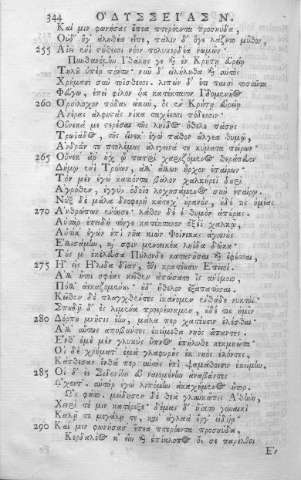 344 ὈΔΥΣΣΕΙΑΣ Ν.
Καί μιν φωνήσας ἔπεα πτερόεντα προσηύδα,
Οὐδ' ὅγ' ἀληθέα εἶπε, πάλιν δ' ὅγε λάζετο μῦθον,
255 Αἰεὶ ἐνὶ στήθεσσι νόον πολυκερδέα νωμῶν·
Πυνθανόμην Ἰθάκης γε καὶ ἐν Κρήτῃ εὐρείῃ
Τηλοῦ ὑπὲρ πόντου· νῦν δ' εἰλήλουθα καὶ αὐτὸς
Χρήμασι σὺν τοίσδεσσι· λιπὼν δ' ἔτι παισὶ τοσαῦτα
Φεύγω, ἐπεὶ φίλον υἷα κατέκτανον Ἰδομενῆος,
260 Ὀρσίλοχον πόδας ὠκὺν, ὃς ἐν Κρήτῃ εὐρείῃ
Ἀνέρας ἀλφηστὰς νίκα ταχέεσσι πόδεσσιν·
Οὕνεκά με στερέσαι τῆς ληΐδος ἤθελε πάσης
Τρωϊάδος, τῆς εἵνεκ' ἐγὼ πάθον ἄλγεα θυμῷ,
Ἀνδρῶν τε πτολέμους ἀλεγεινά τε κύματα πείρων·
265 Οὕνεκ' ἄρ' οὐχ ᾧ πατρὶ χαριζόμενος θεράπευον
Δήμῳ ἔνι Τρώων, ἀλλ' ἄλλων ἦρχον ἑταίρων.
Τὸν μὲν ἐγὼ κατιόντα βάλον χαλκήρεϊ δουρὶ
Ἀγρόθεν, ἐγγὺς ὁδοῖο λοχησάμενος σὺν ἑταίρῳ.
Νὺξ δὲ μάλα δνοφερὴ κάτεχ' οὐρανὸν, οὐδέ τις ἡμέας
270 Ἀνθρώπων ἐνόησε· λάθον δέ ἑ θυμὸν ἀπούρας.
Αὐτὰρ ἐπειδὴ τόνγε κατέκτανον ὀξέϊ χαλκῷ,
Αὐτίκ' ἐγὼν ἐπὶ νῆα κιὼν Φοίνικας ἀγαυοὺς
Ἐλλισάμην, καί σφιν μενοεικέα ληΐδα δῶκα·
Τούς μ' ἐκέλευσα Πύλονδε καταστῆσαι καὶ ἐφέσσαι,
275 Ἢ εἰς Ἤλιδα δῖαν, ὅθι κρατέουσιν Ἐπειοί.
Ἀλλ' ἤτοι σφέας κεῖθεν ἀπώσατο ἲς ἀνέμοιο
Πόλλ' ἀεκαζομένους· οὐδ' ἤθελον ἐξαπατῆσαι.
Κεῖθεν δὲ πλαγχθέντες ἱκάνομεν ἐνθάδε νυκτός.
Σπουδῇ δ' ἐς λιμένα προερέσσαμεν, οὐδέ τις ἡμῖν
280 Δόρπου μνῆστις ἔην, μάλα περ χατέουσιν ἑλέσθαι·
Ἀλλ' αὕτως ἀποβάντες ἐκείμεθα νηὸς ἅπαντες·
Ἔνθ' ἐμὲ μὲν γλυκὺς ὕπνος ἐπήλυθε κεκμηῶτα·
Οἱ δὲ χρήματ' ἐμὰ γλαφυρῆς ἐκ νηὸς ἑλόντες,
Κάτθεσαν ἔνθά περ αὐτὸς ἐπὶ ψαμάθοισιν ἐκείμην.
285 Οἱ δ' ἐς Σιδονίην εὐναιομένην ἀναβάντες
ᾬχοντ'· αὐτὰρ ἐγὼ λιπόμην ἀκαχήμενος ἦτορ.
Ὣς φάτο, μείδησεν δὲ θεὰ γλαυκῶπις Ἀθήνη,
Χειρί τέ μιν κατέρεξε· δέμας δ' ἤϊκτο γυναικὶ
Καλῇ τε μεγάλῃ τε, καὶ ἀγλαὰ ἔργ' εἰδυίῃ·
290 Καί μιν φωνήσασ' ἔπεα πτερόεντα προσηύδα,
Κερδαλέος κ' εἴη καὶ ἐπίκλοπος ὅς σε παρέλθοι
Ἐν